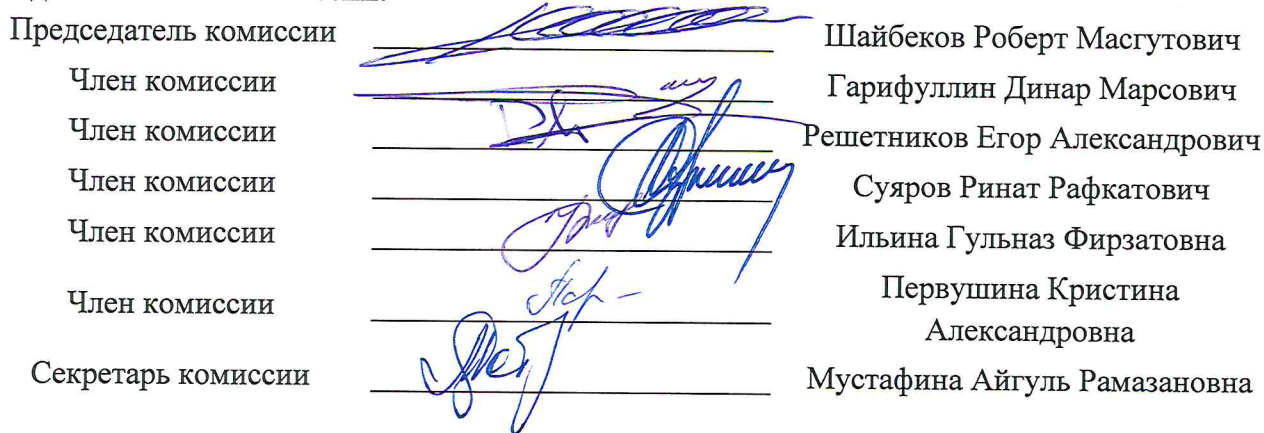 Председатель комиссии Шайбеков Роберт Масгутович
Член комиссии Гарифуллин Динар Марсович
Член комиссии Решетников Егор Александрович
Член комиссии Суяров Ринат Рафкатович
Член комиссии Ильина Гульназ Фирзатовна
Член комиссии Первушина Кристина
Александровна
Секретарь комиссии Мустафина Айгуль Рамазановна